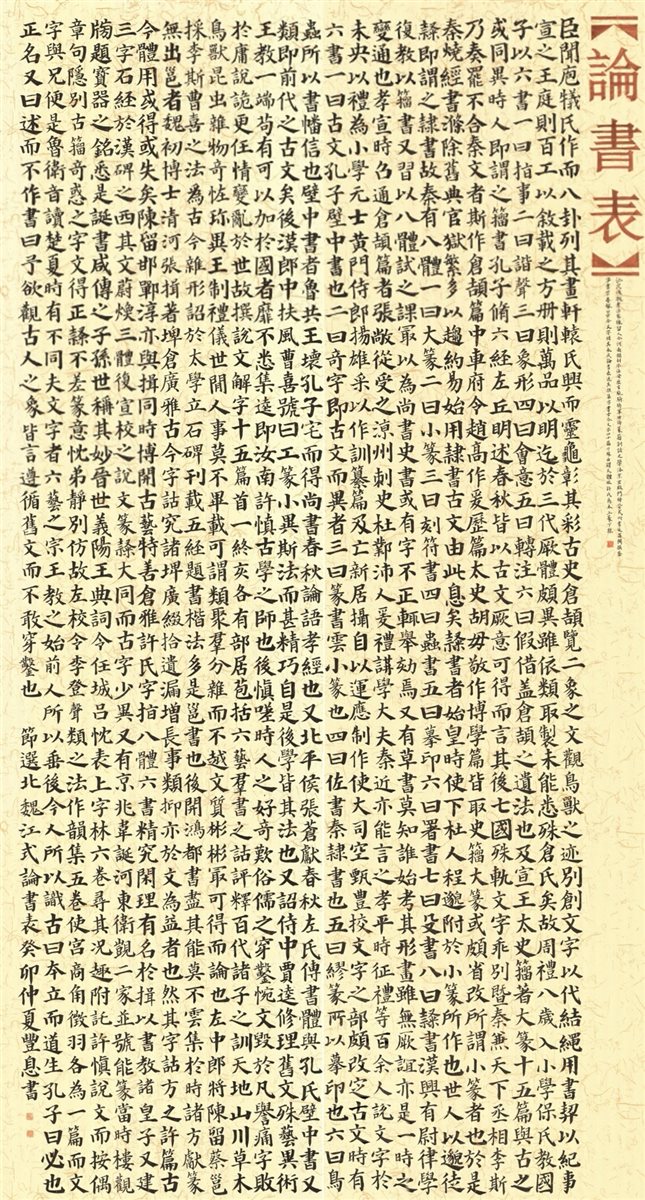 【論書表】
臣聞庖犧氏作而八卦列其畫軒轅氏興而靈龜彰其彩古史倉頡覽二象之文觀鳥獸之迹別創文字以代結繩用書契以紀事
宣之王庭則百工以敘載之方册則萬品以明迄於三代厥體頗異雖依類取製未能悉殊倉氏矣故周禮八歲入小學保氏教國
子以六書一曰指事二曰諧聲三曰象形四曰會意五曰轉注六曰假借盖倉頡之遺法也及宣王太史籀著大篆十五篇與古之
或同異時人即謂之籀書孔子脩六經左丘明述春秋皆以古文厥意可得而言其後七國殊軌文字乖別暨秦兼天下丞相李斯
乃奏罷不合秦文者斯作倉頡篇中車府令趙高作爰歷篇太史胡毋敬作博學篇皆取史籀大篆或頗省改所謂小篆者也於是
秦燒經書滌除舊典官獄繁多以趨約易始用隸書古文由此息矣隸書者始皇時使下杜人程邈附於小篆所作也世人以邈徒
隸即謂之隸書故秦有八體一曰大篆二曰小篆三曰刻符書四曰蟲書五曰摹印六曰署書七曰殳書八曰隸書漢興有尉律學
復教以籀書又習以八體試之課最以為尚書史書或有字不正輒舉劾焉又有草書莫知誰始考其形畫雖無厥誼亦是一時之
變通也孝宣時召通倉頡篇者張敞從受之涼州刺史杜鄴沛人爰禮講學大夫秦近亦能言之孝平時征禮等百余人說文字於
未央以禮為小學元士黄門侍郎揚雄采以作訓纂篇及亡新居攝自以運應制作使大司空甄豐挍文字之部頗改定古文時有
六書一曰古文孔子壁中書也二曰奇字即古文而異者三曰篆書雲小篆也四曰佐書秦隸書也五曰繆篆所以摹印也六曰鳥
蟲所以書幡信也壁中書者魯共王壞孔子宅而得尚書春秋論語孝經也又北平侯張蒼獻春秋左氏傳書體與孔氏壁中書又
類即前代之古文矣後漢郎中扶風曹喜號曰工篆小異斯法而甚精巧自是後學皆其法也又詔侍中賈逵修理舊文殊藝異術
王教一端苟有可以加於國者靡不悉集逵即汝南許慎古學之師也後慎嗟時人之好奇歎俗儒之穿鑿惋文毀於凡譽痛字敗
於庸說詭更任情變亂於世故撰說文解字十五篇首一終亥各有部居苞括六藝羣書之詁評釋百代諸子之訓天地山川草木
鳥獸昆虫雜物奇恠珎異王制禮儀世間人事莫不畢載可謂類聚羣分雜而不越文質彬彬最可得而論也左中郎將陳留蔡邕
採李斯曹喜之法為古今雜形詔於太學立石碑刊載五經題書楷法多是邕書也後開鴻都書盡其能莫不雲集於時諸方獻篆
無出邕者魏初博士清河張揖著埤倉廣雅古今字詁究諸埤廣綴拾遺漏增長事類抑亦於文為益者也然其字詁方之許篇古
今體用或得或失矣陳留邯鄲淳亦與揖同時博開古藝特善倉雅許氏字指八體六書精究閑理有名於揖以書教諸皇子又建
三字石經於漢碑之西其文蔚煥三體後宣校之說文篆隸大同而古字少異又有京兆韋誕河東衛觀二家並號能篆當時樓觀
牓題寶器之銘悉是誕書咸傳之子孫世稱其妙晉世義陽王典詞令任城呂忱表上字林六卷尋其况趣附託許慎說文而按偶
章句隱別古籀奇惑之字文得正隸不差篆意忱弟靜別仿故左校令李登聲類之法作韻集五卷使宮商角徵羽各為一篇而文
字與兄便是魯衛音讀楚夏時有不同夫文字者六藝之宗王教之始前人所以垂後今人所以識古曰夲立而道生孔子曰必也
正名又曰述而不作書曰予欲觀古人之象皆言遵循舊文而不敢穿鑿也 節選北魏江式論書表癸卯仲夏豐息書